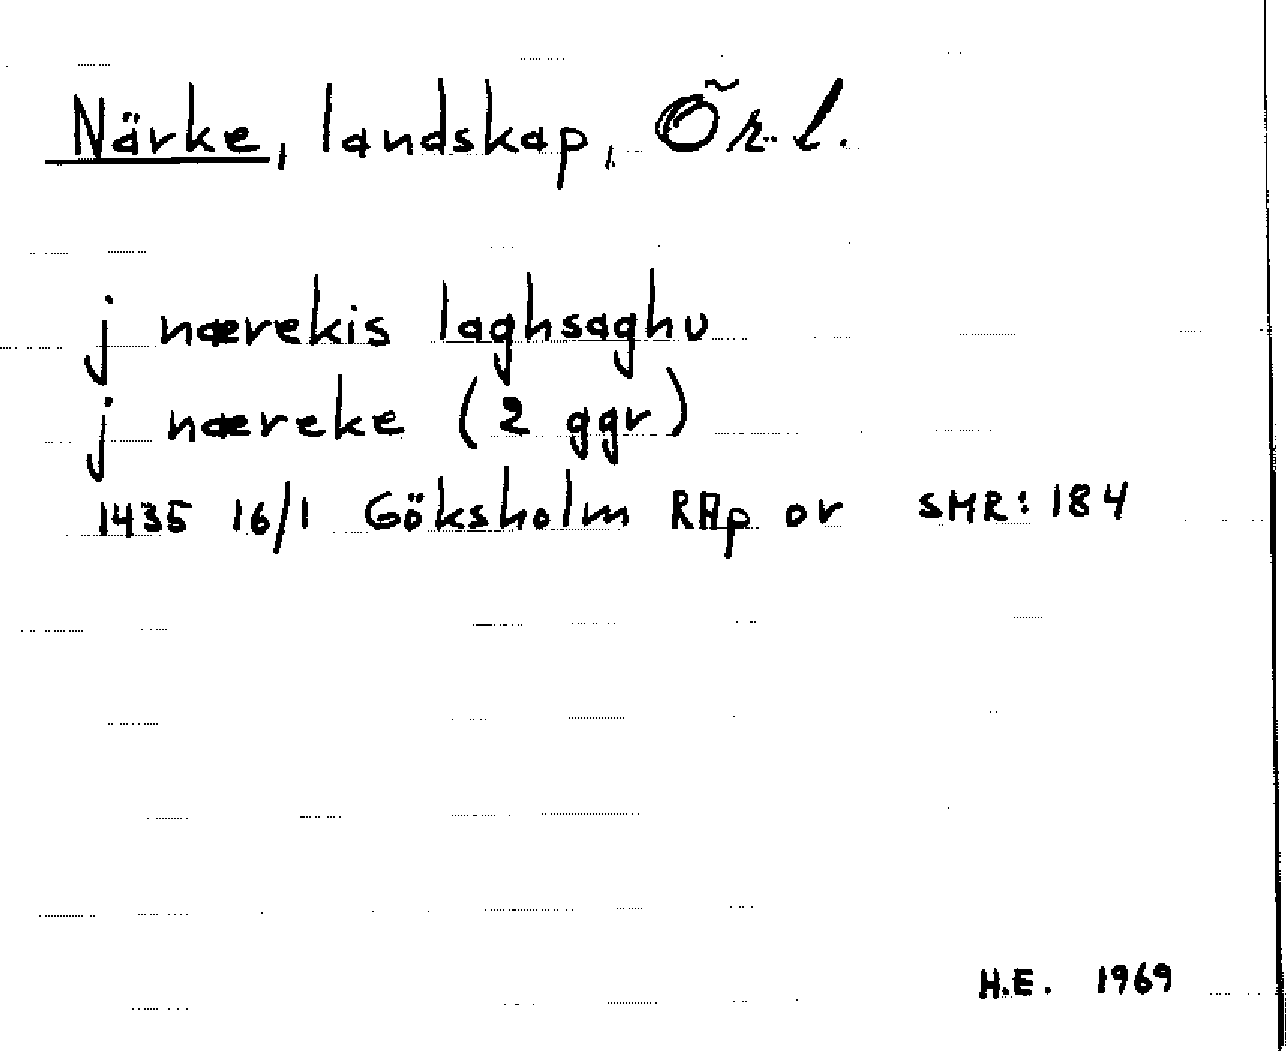 Närke, landskap, Ör. l.
j nærekis laghsaghu
j næreke (2 ggr)
1435 16/1 Göksholm RAp or SMR: 184
H.E. 1969